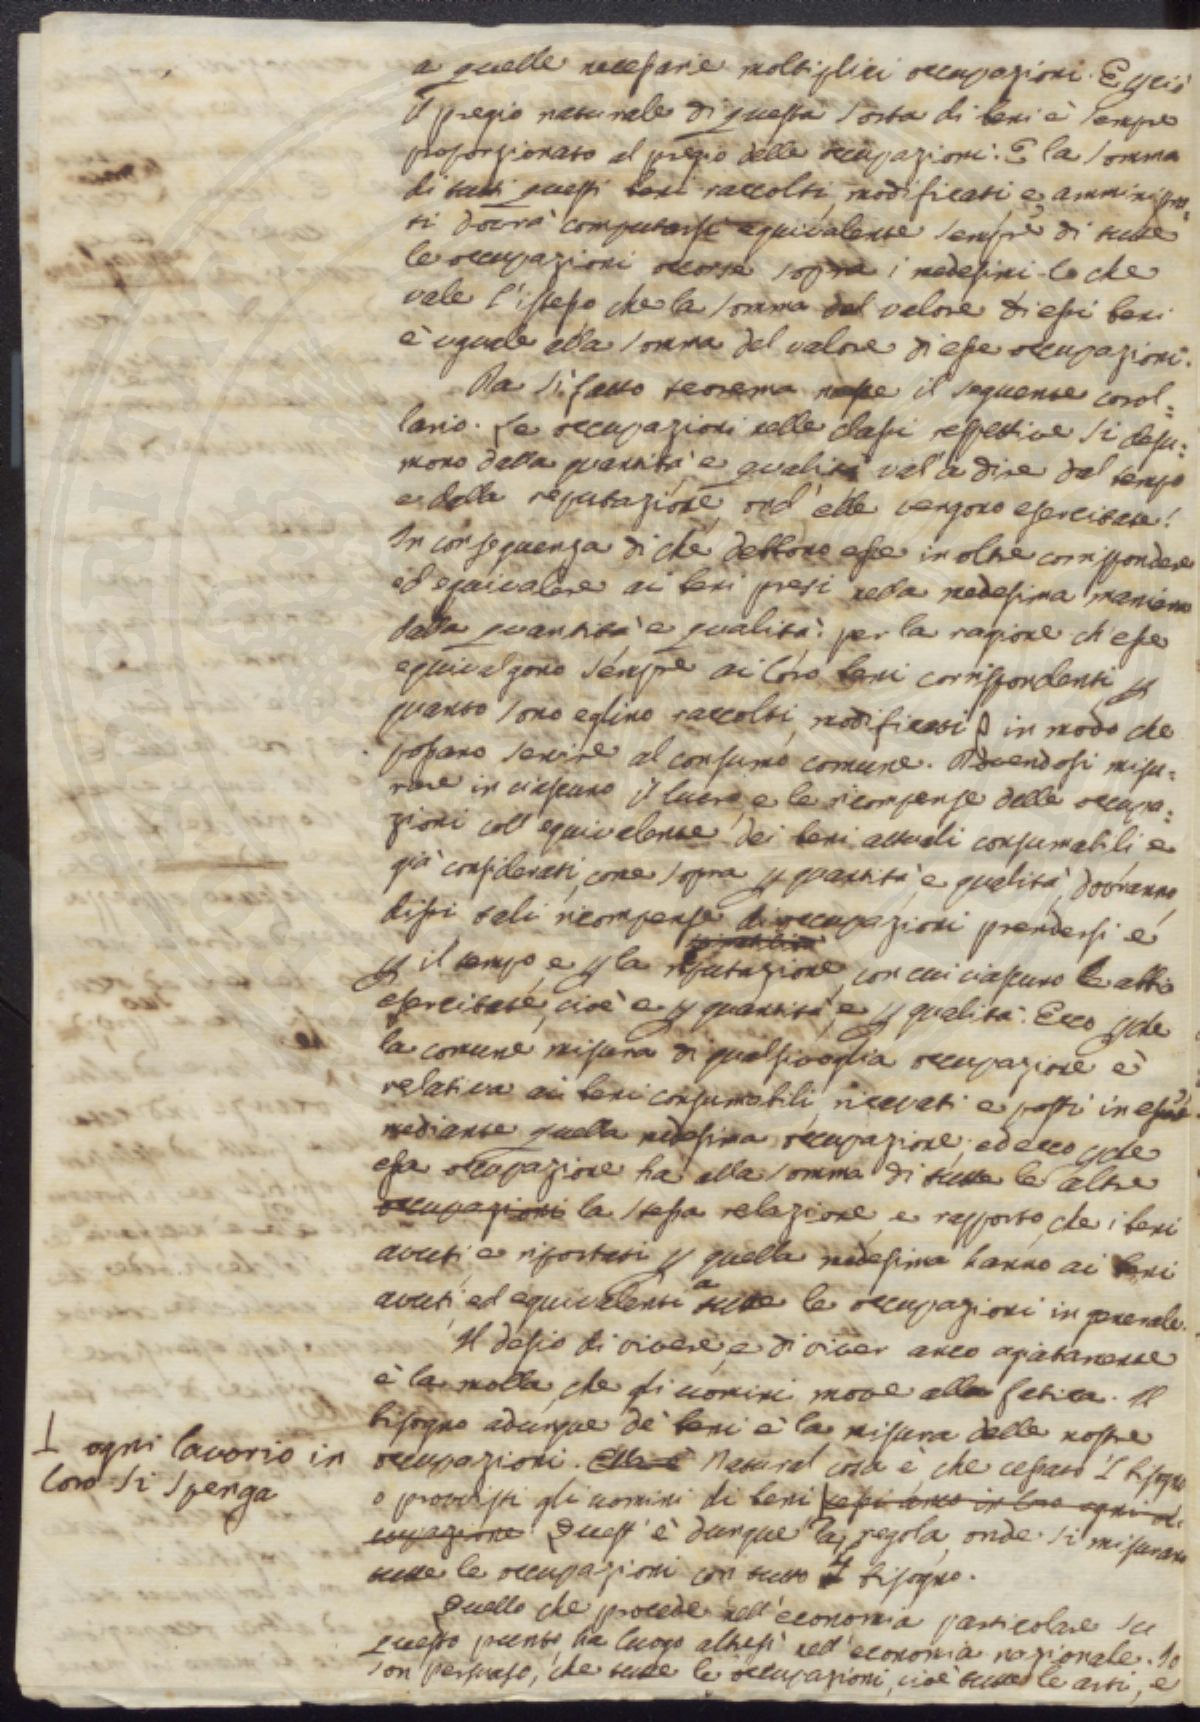 a quelle necessarie moltiplici occupazioni. E ciò
il pregio naturale di questa sorta di beni è sempre
proporzionato al pregio delle occupazioni. E la somma
di tutti questi beni raccolti, modificati, e amministra=
ti dovrà computarsi equivalente sempre di tutte
le occupazioni occorse sopra i medesimi lo che
vale l'istesso che la somma del valore di essi beni
è uguale alla somma del valore di esse occupazioni.
Da sì fatto teorema nasce il seguente corol=
lario. Le occupazioni nelle classi rispettive si desu=
mono dalla quantità e qualità val' a dire dal tempo
e dalla reputazione, ond' elle vengono esercitate.
In conseguenza di che debbono esse in oltre corrispondere
ed equivalere ai beni presi nella medesima maniera
dalla quantità e qualità: per la ragione ch' esse
equivalgono sempre ai loro beni corrispondenti p
quanto sono eglino raccolti, modificati in modo che
possano servire al consumo comune. Dovendosi misu=
rare in ciascuno il lucro, e le ricompense delle occupa=
zioni coll' equivalente dei beni attuali consumabili, e
già considerati, come sopra p quantità, e qualità, dovranno
dissi tali ricompense di occupazioni prendersi e
p il tempo, e p la reputazione, con cui ciascuno le abbi
esercitate, cioè e p quantità, e p qualità. Ecco pche
la comune misura di qualsivoglia occupazione è
relativa ai beni consumabili, ricevuti e posti in essere
mediante quella medesima occupazione; ed ecco pche
essa occupazione ha alla somma di tutte le altre
occupazioni la stessa relazione, e rapporto, che i beni
avuti e riportati p quella medesima hanno ai beni
avuti, ed equivalenti a tutte le occupazioni in generale.
Il desio di vivere, e di viver anco agiatamente
è la molla, che gli uomini move alla fatica. Il
bisogno adunque de' beni è la misura delle nostre
occupazioni. Ella è Natural cosa è che cessato 'l bisogno
o provvisti gli uomini di beni cessi anco in loro ogni oc=
cupazione. Quest' è dunque la regola, onde si misurano
tutte le occupazioni con tutto 'l bisogno.
Quello che procede nell' economia particolare su
questo punto ha luogo altresì nell' economia nazionale. Io
son persuaso, che tutte le occupazioni, cioè tutte le arti, e
⊥ ogni lavorio in
loro si spenga